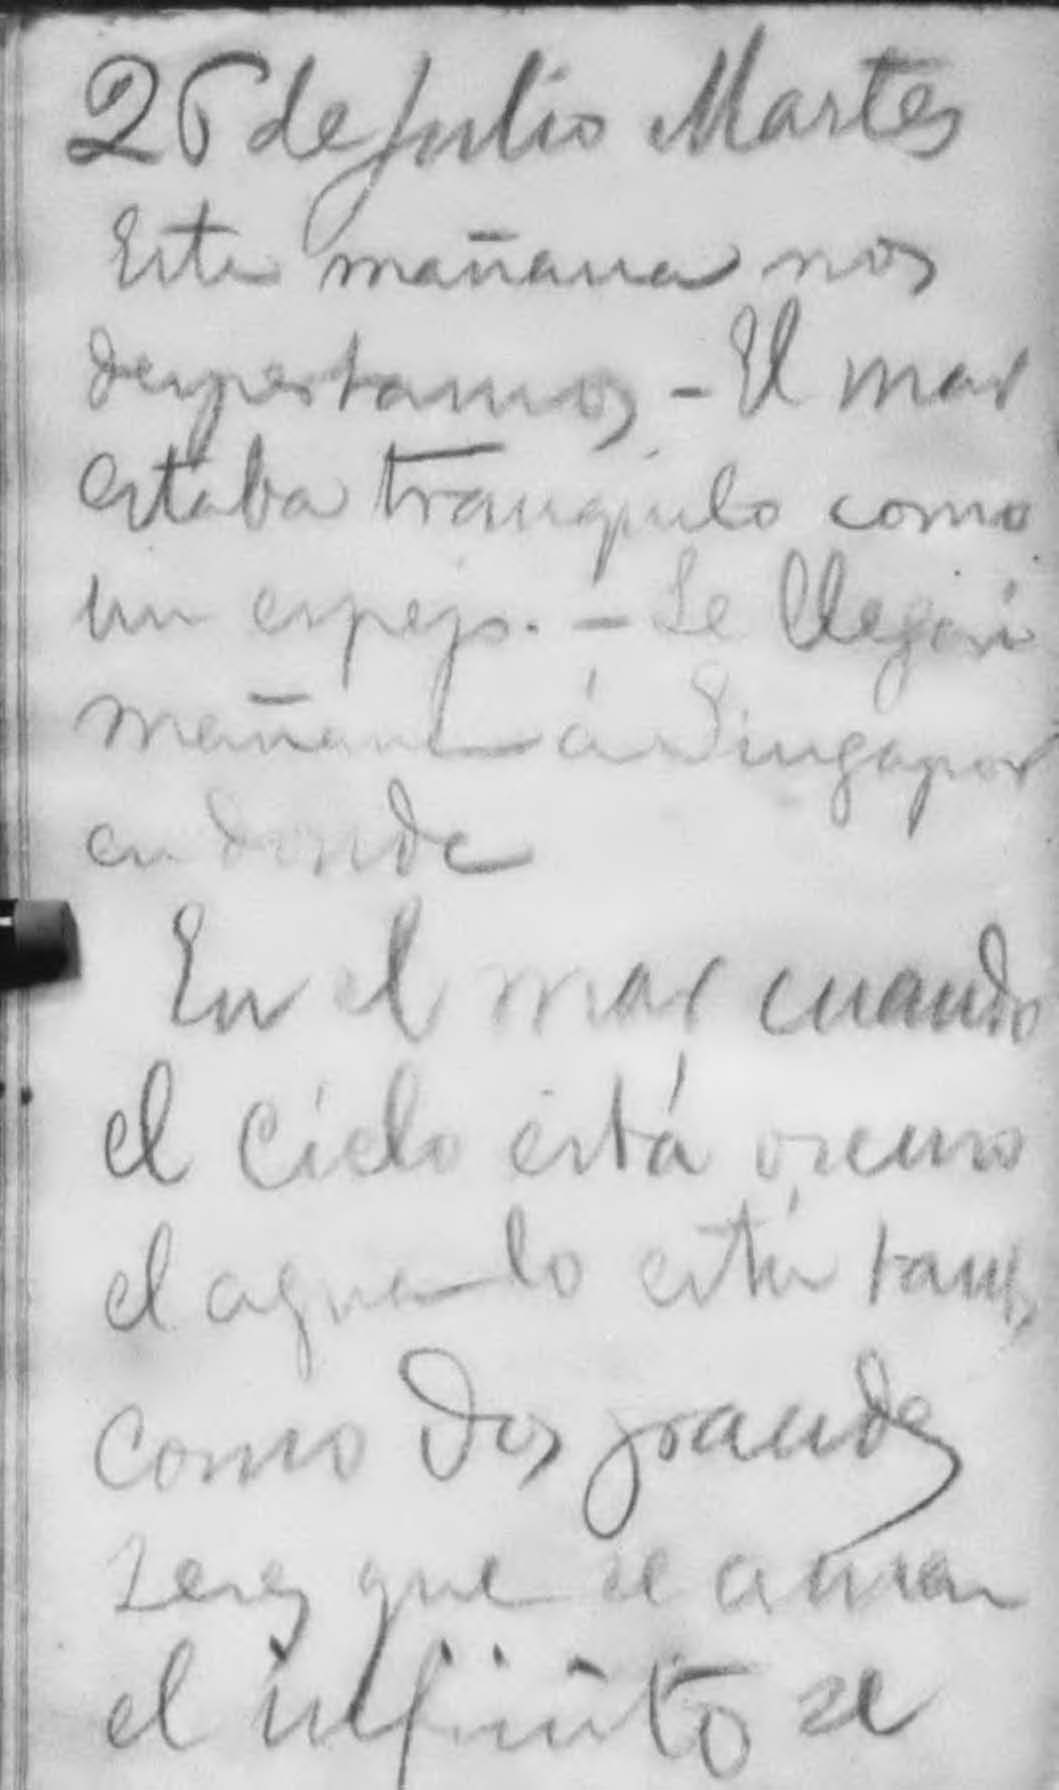 26 de Julio Martes
Esta mañana nos
despertamos – El mar
estaba tranquilo como
un espejo. – Se llegará
mañana á Singapor
en donde
En el mar cuando
el cielo está oscuro
el agua lo está tamb,
como dos grandes
seres que se aman
el infinito se